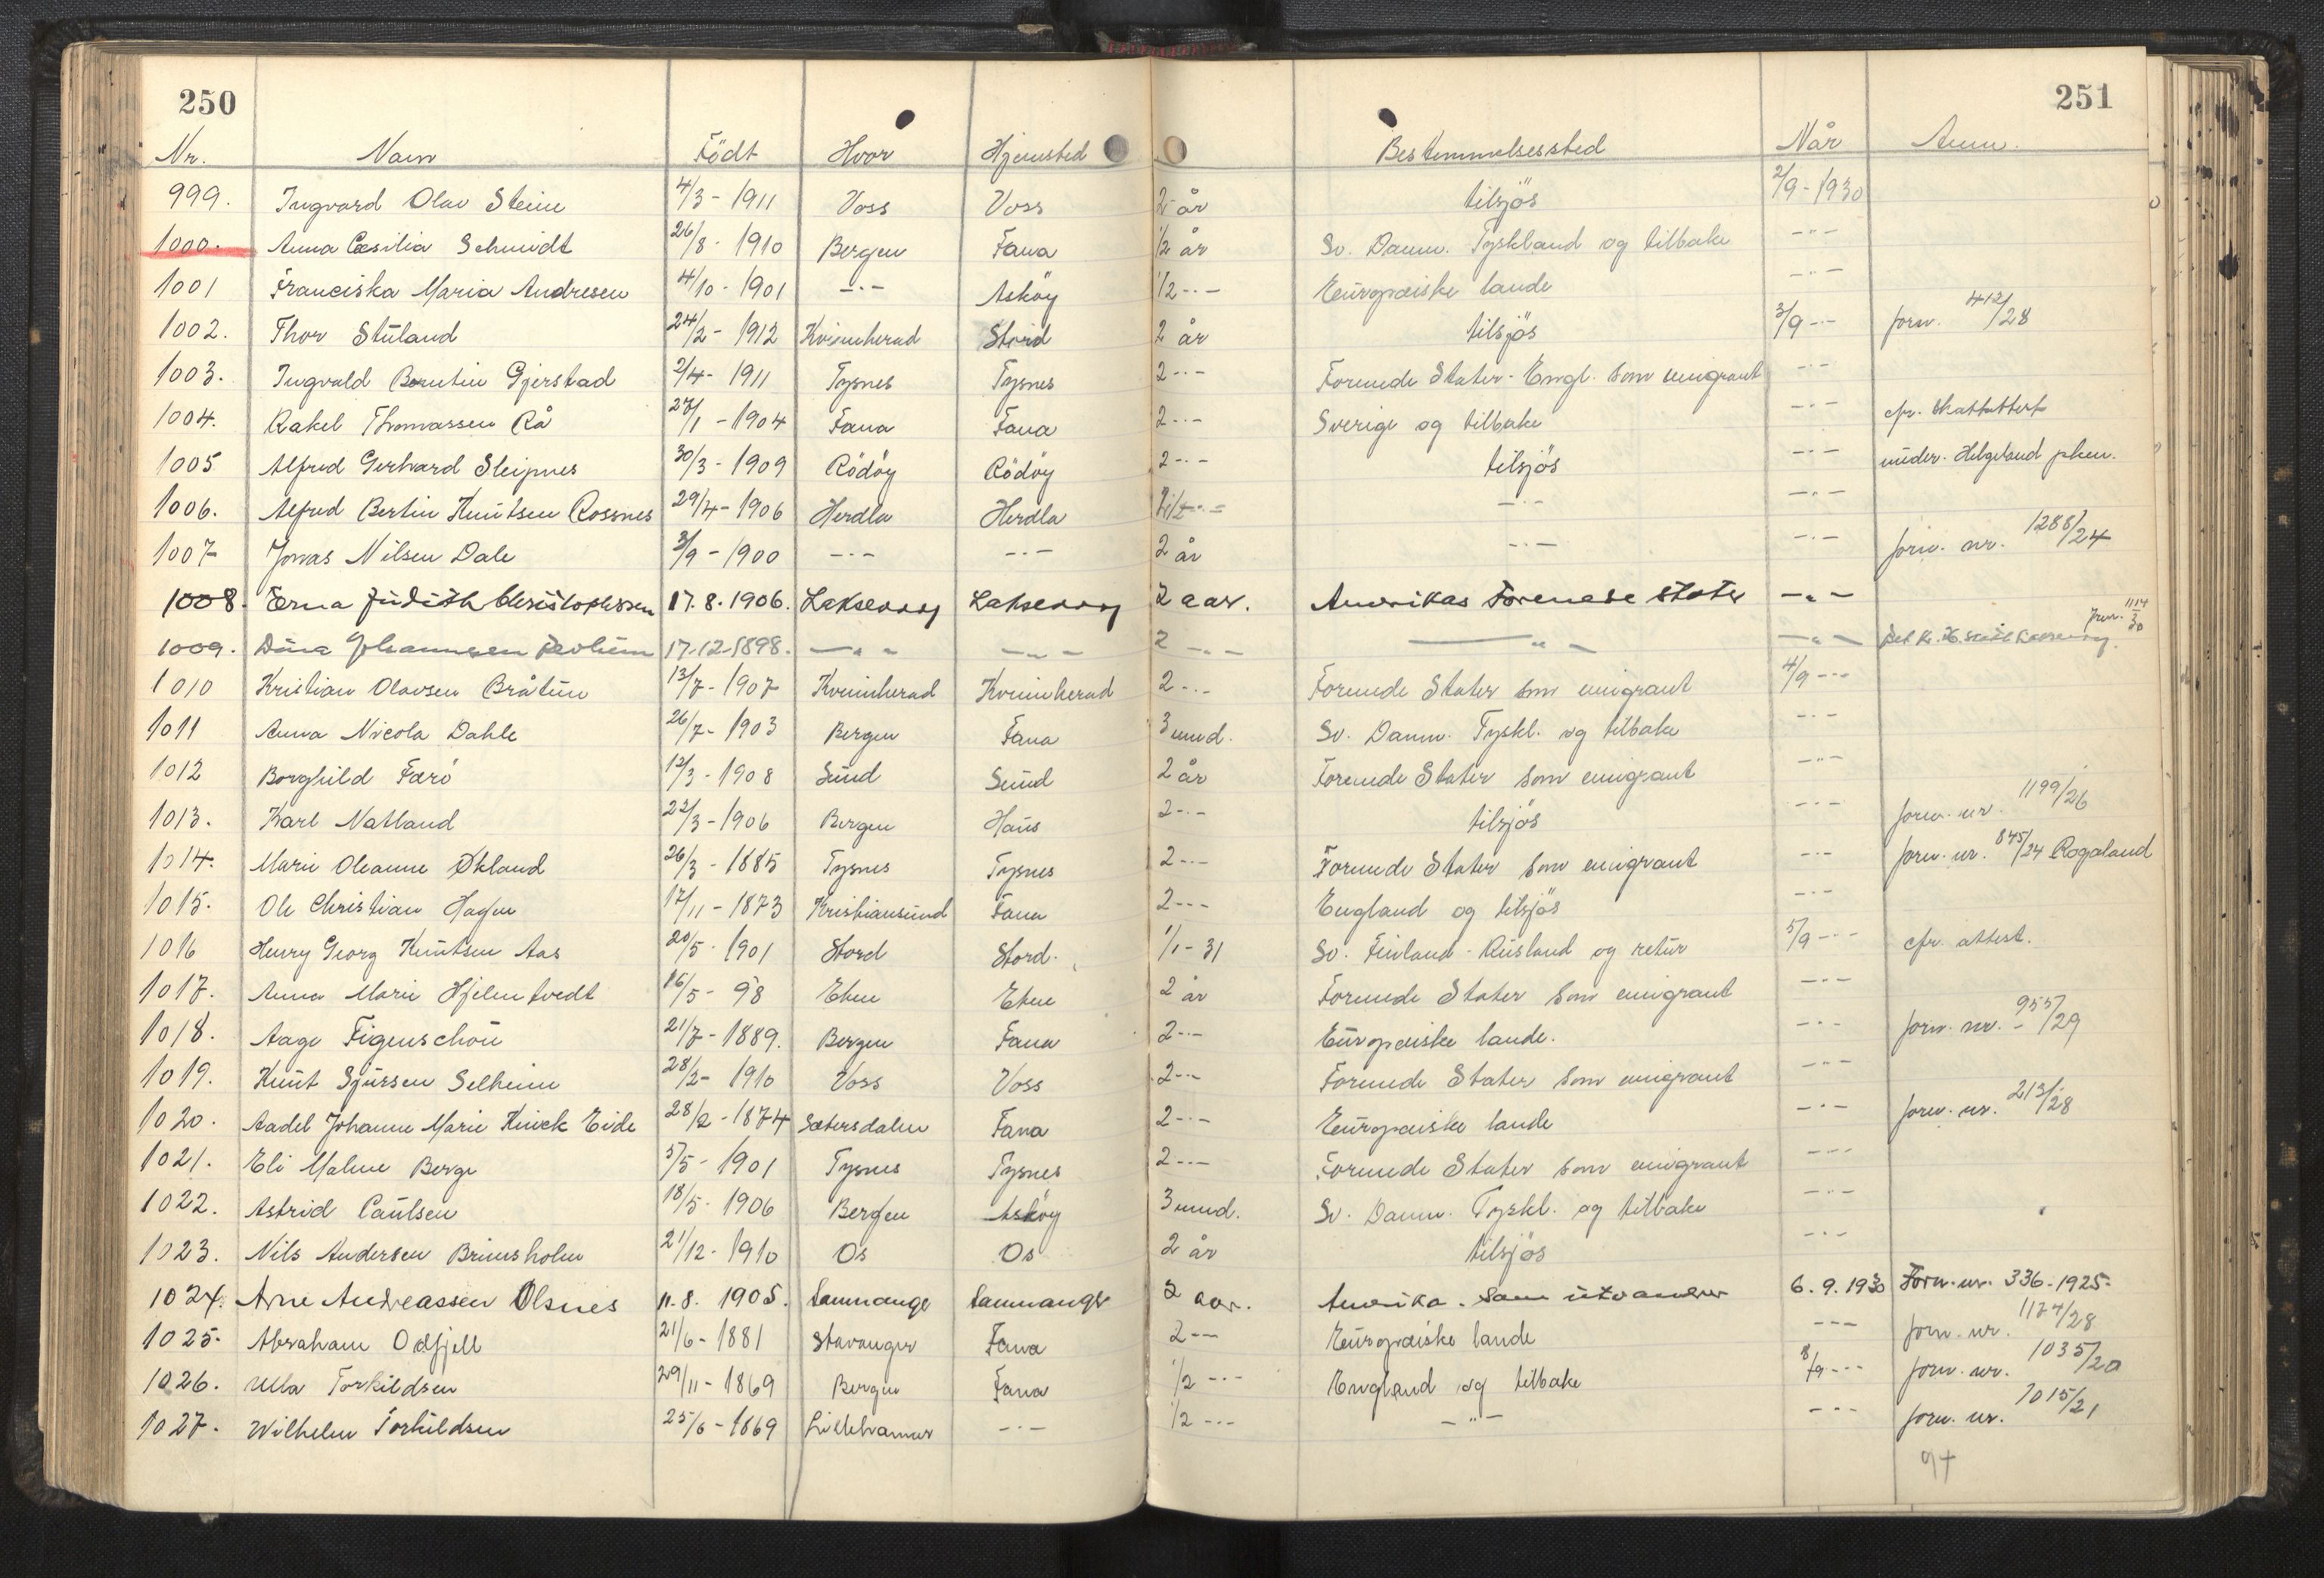 250
251
Nr. Navn Födt Hvor Hjemsted Bestemmelsessted Når Anm.
999. Ingvard Olav Steine 4/3 - 1911 Voss Voss 2 år tilsjös 2/9 - 1930
1000. Anna Cæsilia Schmidt 26/8 - 1910 Bergen Fana 1/2 år Sv. Danm. Tyskland og tilbake -"-
1001 Franciska Maria Andresen 4/10 - 1901 -"- Asköy 1/2 -"- Europæiske lande -"-
1002. Thor Stuland 24/2 - 1912 Kvinnherad Stord 2 år tilsjös 3/9 -"- forn. 412/28
1003. Ingvald Berntin Gjerstad 2/4 - 1911 Tysnes Tysnes 2 -"- Forenede Stater - Engl. som emigrant -"-
1004. Rakel Thomassen Rå 27/1 - 1904 Fana Fana 2 -"- Sverige og tilbake -"- cfr. skatteattest
1005 Alfred Gerhard Sleipnes 30/3 - 1909 Rödöy Rödöy 2 -"- tilsjös -"- under. Helgeland pkm.
1006. Alfred Bertin Knutsen Rossnes 29/4 - 1906 Herdla Herdla -"- -"-
1007 Jonas Nilsen Dale 3/9 - 1900 -"- -"- 2 år -"- -"- forn. nr. 1288/24
1008. Erna Judith Christophersen 17. 8. 1906. Laksevaag Laksevaag 2 aar. Amerikas Forenede Stater -"-
1009. 17-12-1898. -"- -"- 2 -"- -"- -"- forn. 1114/30
1010 Kristian Olavsen Bråtun 13/7 - 1907 Kvinnherad Kvinnherad 2 -"- Forenede Stater som emigrant 4/9 -"-
1011 Anna Nicola Dahle 26/7 - 1903 Bergen Fana 3 mnd. Sv. Danm. Tyskl. og tilbake -"-
1012 Borghild Færö 12/3 - 1908 Sund Sund 2 år Forenede Stater som emigrant -"-
1013. Karl Natland 22/3 - 1906 Bergen Haus 2 -"- tilsjös -"- forn. nr. 1199/26
1014. Marie Oleanne Økland 26/3 - 1885 Tysnes Tysnes 2 -"- Forenede Stater som emigrant -"- forn. nr. 845/24 Rogaland
1015. Ole Christian Hagen 17/11 - 1873 Kristiansund Fana 2 -"- England og tilsjös -"-
1016 Henry Georg Knutsen Aas 20/5 - 1901 Stord Stord. 1/1 - 31 Sv. Finland - Rusland og retur 5/9 -"- cfr. attest.
1017. Anna Marie Hjelmtvedt 16/5 - 98 Etne Etne 2 år Forenede Stater som emigrant -"-
1018. Aage Figenschou 21/7 - 1889. Bergen Fana 2 -"- Europæiske lande. -"- forn. nr. 955/29
1019. Knut Sjursen Selheim 28/2 - 1910 Voss Voss 2 -"- Forenede Stater som emigrant -"-
1020. Aadel Johanne Marie Knick Eide 28/2 - 1874 Sætersdalen Fana 2 -"- Europæiske lande -"- forn. nr. 213/28
1021. Eli Malene Berge 5/5 - 1901 Tysnes Tysnes 2 -"- Forenede Stater som emigrant -"-
1022. Astrid Paulsen 18/5 - 1906 Bergen Asköy 3 mnd. Sv. Danm. Tyskl. og tilbake -"-
1023. Nils Andersen Brimsholm 21/12 - 1910 Os Os 2 år tilsjös -"-
1024. Arne Andreassen Olsnes 11. 8. 1905. Samnanger Samnanger 2 aar. Amerika. som utvandrer 6. 9. 1930 Forn. nr. 336-1925.
1025. Abraham Odfjell 21/6 - 1881 Stavanger Fana 2 -"- Europæiske lande -"- forn. nr. 1174/28
1026. Ulla Torkildsen 29/11 - 1869 Bergen Fana 1/2 -"- England og tilbake 8/9 -"- forn. nr. 1035/20
1027. Wilhelm Torkildsen 25/6 - 1869 Lillehammer -"- 1/2 -"- -"- -"- forn. nr. 1015/21